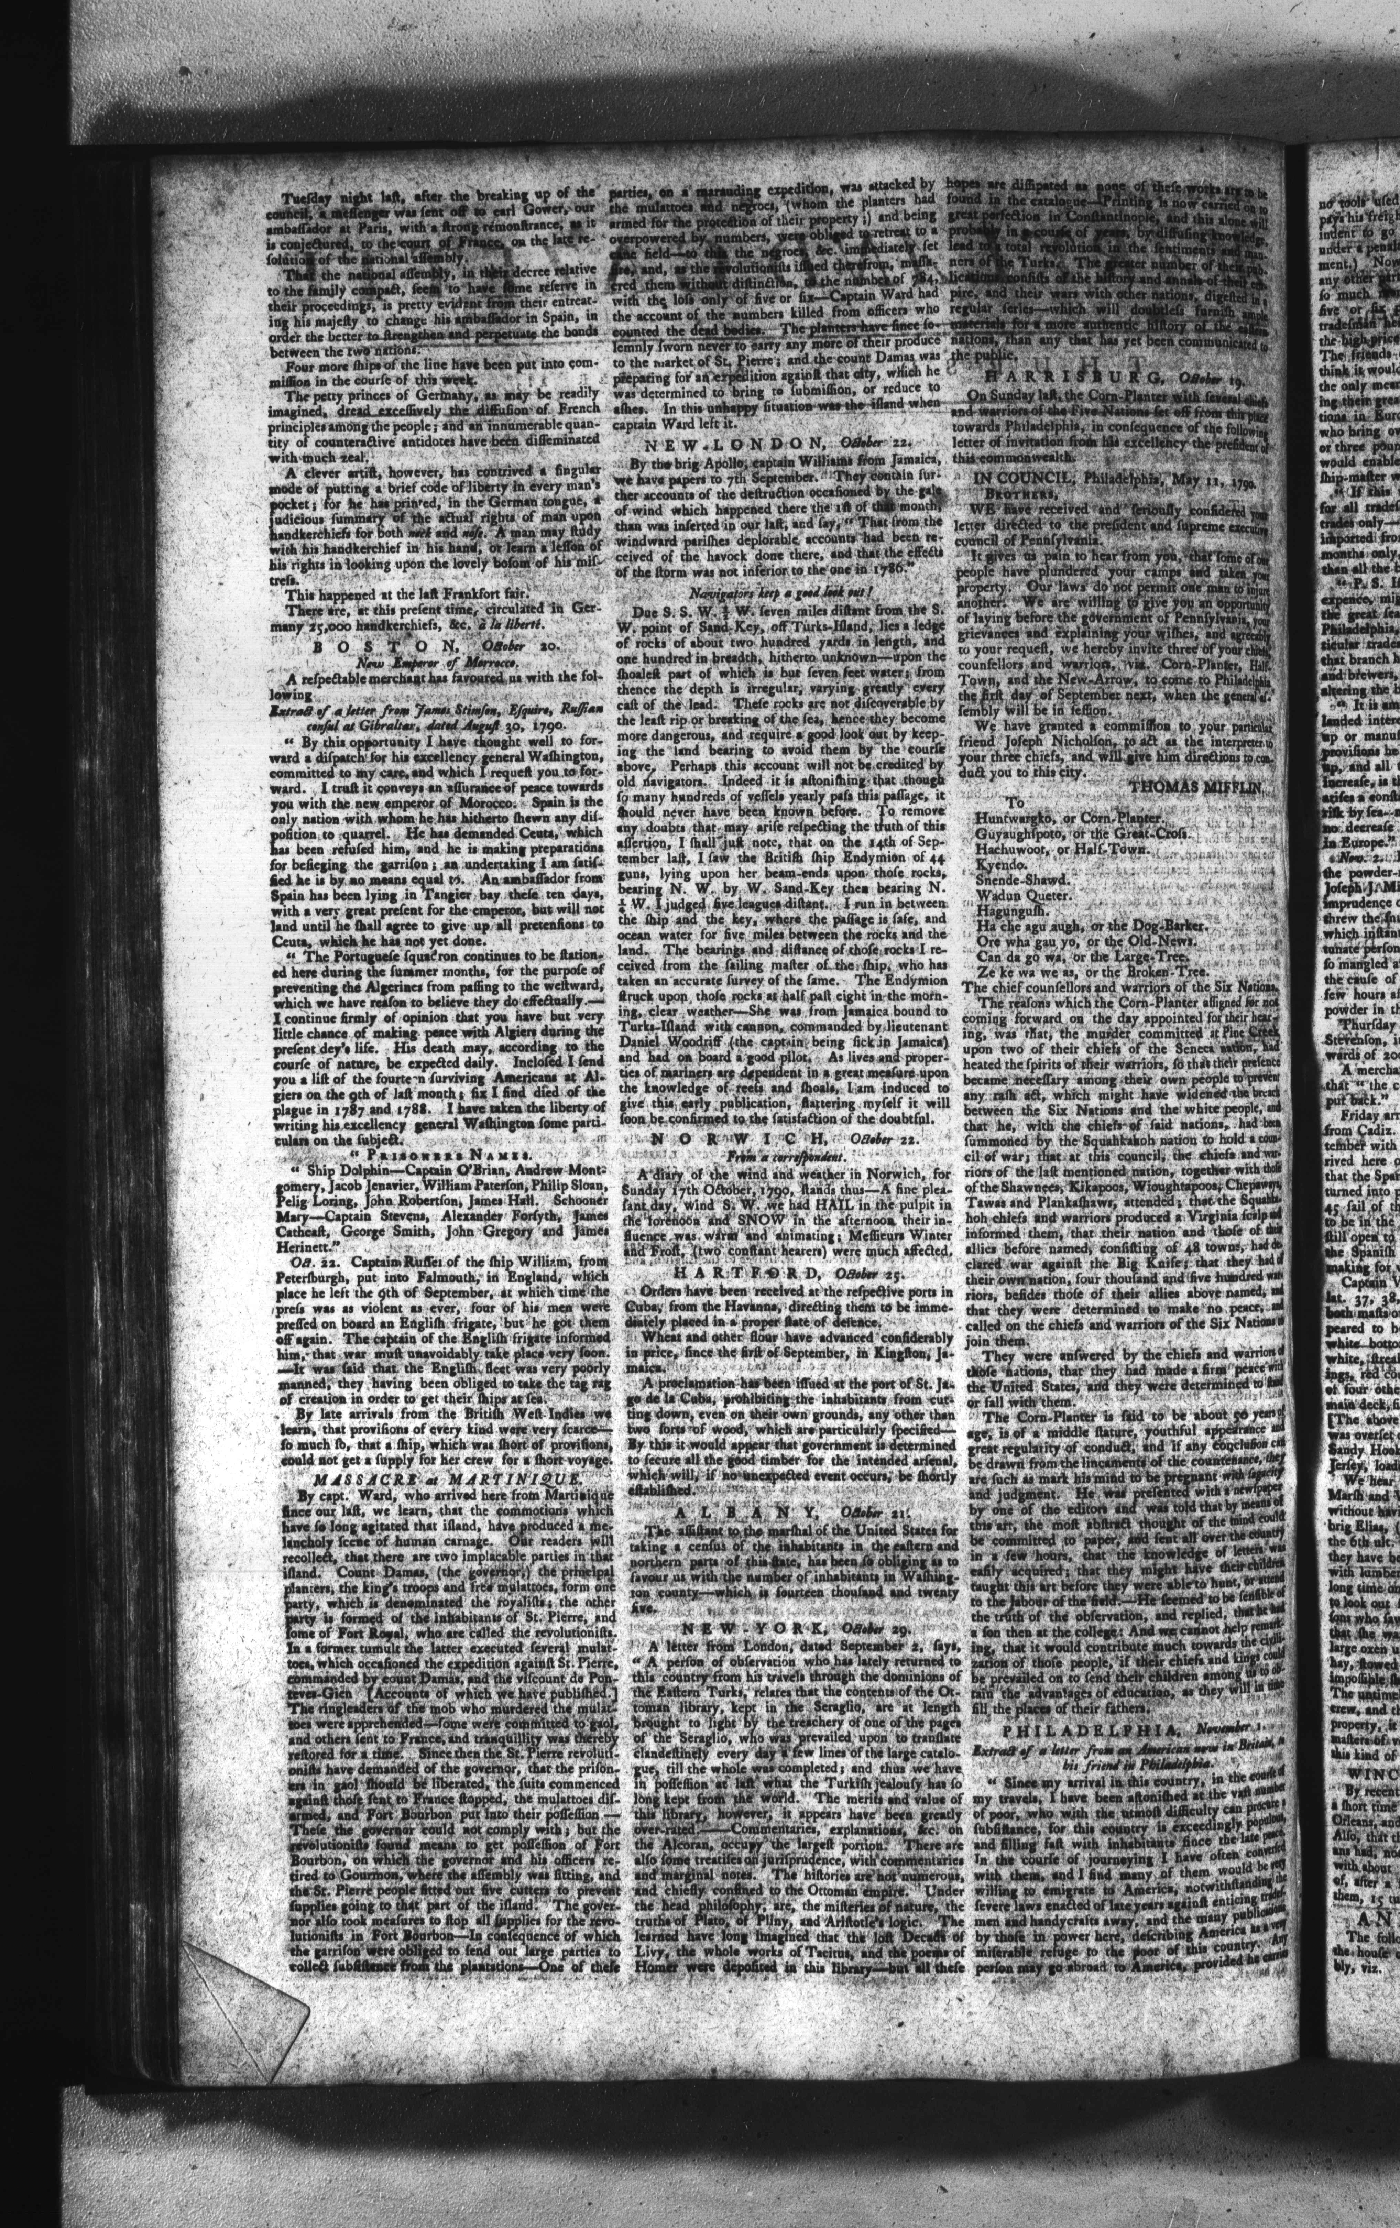 Tueſday night laſt, after the breaking up of the
council, a meſſenger was ſent off to earl Gower, our
ambaſſador at Paris, with a ſtrong remonſtrance, as it
is conjectured, to the court of France, on the late re-
ſolution of the national aſſembly.
That the national aſſembly, in their decree relative
to the family compact, ſeem to have ſome reſerve in
their proceedings, is pretty evident from their entreat-
ing his majeſty to change his ambaſſador in Spain, in
order the better to ſtrengthen and perpetuate the bonds
between the two nations.
Four more ſhips of the line have been put into com-
miſſion in the courſe of this week.
The petty princes of Germany, as may be readily
imagined, dread exceſſively the diffuſion of French
principles among the people; and an innumerable quan-
tity of counteractive antidotes have been diſſeminated
with much zeal.
A clever artiſt, however, has contrived a ſingular
mode of putting a brief code of liberty in every man's
pocket; for he has printed, in the German tongue, a
judicious ſummary of the actual rights of man upon
handkerchiefs for both neck and noſe. A man may ſtudy
with his handkerchief in his hand, or learn a leſſon of
his rights in looking upon the lovely boſom of his miſ-
treſs.
This happened at the laſt Frankfort fair.
There are, at this present time, circulated in Ger-
many 25,000 handkerchiefs, &c. à la liberté.
BOSTON, October 20.
New Emperor of Morrocco.
A reſpectable merchant has favoured us with the fol-
lowing
Extract of a letter from James Stimſon, Eſquire, Ruſſian
conſul at Gibraltar, dated Auguſt 30, 1790.
“ By this opportunity I have thought well to for-
ward a diſpatch for his excellency general Waſhington,
committed to my care, and which I requeſt you to for-
ward. I truſt it conveys an aſſurance of peace towards
you with the new emperor of Morocco. Spain is the
only nation with whom he has hitherto ſhewn any diſ-
poſition to quarrel. He has demanded Ceuta, which
has been refuſed him, and he is making preparations
for beſieging the garriſon; an undertaking I am ſatiſ-
fied he is by no means equal to. An ambaſſador from
Spain has been lying in Tangier bay theſe ten days,
with a very great preſent for the emperor, but will not
land until he ſhall agree to give up all pretenſions to
Ceuta, which he has not yet done.
“ The Portugueſe ſquadron continues to be ſtation-
ed here during the ſummer months, for the purpoſe of
preventing the Algerines from paſſing to the weſtward,
which we have reaſon to believe they do effectually.—
I continue firmly of opinion that you have but very
little chance of making peace with Algiers during the
preſent dey's life. His death may, according to the
courſe of nature, be expected daily. Incloſed I ſend
you a liſt of the fourteen ſurviving Americans at Al-
giers on the 9th of laſt month; ſix I find died of the
plague in 1787 and 1788. I have taken the liberty of
writing his excellency general Waſhington ſome parti-
culars on the ſubject.
“ PRISONERS NAMES.
“ Ship Dolphin—Captain O'Brian, Andrew Mont-
gomery, Jacob Jenavier, William Paterſon, Philip Sloan,
Pelig Loring, John Robertſon, James Hall. Schooner
Mary—Captain Stevens, Alexander Forſyth, James
Catheaſt, George Smith, John Gregory and James
Herinett.”
Oct. 22. Captain Ruſſel of the ſhip William, from
Peterſburgh, put into Falmouth, in England, which
place he left the 9th of September, at which time the
preſs was as violent as ever, four of his men were
preſſed on board an Engliſh frigate, but he got them
off again. The captain of the Engliſh frigate informed
him, that war muſt unavoidably take place very ſoon.
—It was ſaid that the Engliſh fleet was very poorly
manned, they having been obliged to take the tag rag
of creation in order to get their ſhips at ſea.
By late arrivals from the Britiſh Weſt-Indies we
learn, that proviſions of every kind were very ſcarce—
ſo much ſo, that a ſhip, which was ſhort of proviſions,
could not get a ſupply for her crew for a ſhort voyage.
MASSACRE at MARTINIQUE.
By capt. Ward, who arrived here from Martinique
ſince our laſt, we learn, that the commotions which
have ſo long agitated that iſland, have produced a me-
lancholy ſcene of human carnage. Our readers will
recollect, that there are two implacable parties in that
iſland. Count Damas, (the governor,) the principal
planters, the king's troops and free mulattoes, form one
party, which is denominated the royaliſts; the other
party is formed of the inhabitants of St. Pierre, and
ſome of Fort Royal, who are called the revolutioniſts.
In a former tumult the latter executed ſeveral mulat-
toes, which occaſioned the expedition againſt St. Pierre,
commanded by count Damas, and the viſcount de Pon-
teves-Gien [Accounts of which we have publiſhed.]
The ringleaders of the mob who murdered the mulat-
toes were apprehended—ſome were committed to gaol,
and others ſent to France, and tranquillity was thereby
reſtored for a time. Since then the St. Pierre revoluti-
oniſts have demanded of the governor, that the priſon-
ers in gaol ſhould be liberated, the ſuits commenced
againſt thoſe ſent to France ſtopped, the mulattoes diſ-
armed, and Fort Bourbon put into their poſſeſſion —
Theſe the governor could not comply with; but the
revolutioniſts found means to get poſſeſſion of Fort
Bourbon, on which the governor and his officers re-
tired to Gourmon, where the aſſembly was ſitting, and
the St. Pierre people fitted out five cutters to prevent
ſupplies going to that part of the iſland. The gover-
nor alſo took meaſures to ſtop all ſupplies for the revo-
lutioniſts in Fort Bourbon—In conſequence of which
the garriſon were obliged to ſend out large parties to
collect ſubſiſtence from the plantations—One of theſe
parties, on a marauding expedition, was attacked by
the mulattoes and negroes, (whom the planters had
armed for the protection of their property;) and being
overpowered by numbers, were obliged to retreat to a
cane field—to this the negroes &c. immediately ſet
fire, and, as the revolutioniſts iſſued therefrom, maſſa-
cred them without diſtinction, to the number of 784,
with the loſs only of five or ſix—Captain Ward had
the account of the numbers killed from officers who
counted the dead bodies. The planters have ſince ſo-
lemnly ſworn never to carry any more of their produce
to the market of St. Pierre; and the count Damas was
preparing for an expedition againſt that city, which he
was determined to bring to ſubmiſſion, or reduce to
aſhes. In this unhappy ſituation was the iſland when
captain Ward left it.
NEW-LONDON, October 22.
By the brig Apollo, captain Williams from Jamaica,
we have papers to 7th September. They contain fur-
ther accounts of the deſtruction occaſioned by the gale
of wind which happened there the 1ſt of that month,
than was inſerted in our laſt, and ſay, “ That from the
windward pariſhes deplorable accounts had been re-
ceived of the havock done there, and that the effects
of the ſtorm was not inferior to the one in 1786.”
Navigators keep a good look out!
Due S. S. W. ½ W. ſeven miles diſtant from the S.
W. point of Sand-Key, off Turks-Iſland, lies a ledge
of rocks of about two hundred yards in length, and
one hundred in breadth, hitherto unknown—upon the
ſhoaleſt part of which is but ſeven feet water; from
thence the depth is irregular, varying greatly every
caſt of the lead. Theſe rocks are not diſcoverable by
the leaſt rip or breaking of the ſea, hence they become
more dangerous, and require a good look out by keep-
ing the land bearing to avoid them by the courſe
above, Perhaps this account will not be credited by
old navigators. Indeed it is aſtoniſhing that though
ſo many hundreds of veſſels yearly paſs this paſſage, it
ſhould never have been known before. To remove
any doubts that may ariſe reſpecting the truth of this
aſſertion, I ſhall juſt note, that on the 14th of Sep-
tember laſt, I ſaw the Britiſh ſhip Endymion of 44
guns, lying upon her beam-ends upon thoſe rocks,
bearing N. W. by W. Sand-Key then bearing N.
½ W. I judged five leagues diſtant. I run in between
the ſhip and the key, where the paſſage is ſafe, and
ocean water for five miles between the rocks and the
land. The bearings and diſtance of thoſe rocks I re-
ceived from the ſailing maſter of the ſhip, who has
taken an accurate ſurvey of the ſame. The Endymion
ſtruck upon thoſe rocks at half paſt eight in the morn-
ing, clear weather—She was from Jamaica bound to
Turks-Iſland with cannon, commanded by lieutenant
Daniel Woodriff (the captain being ſick in Jamaica)
and had on board a good pilot. As lives and proper-
ties of mariners are dependent in a great meaſure upon
the knowledge of reefs and ſhoals, I am induced to
give this early publication, flattering myſelf it will
ſoon be confirmed to the ſatisfaction of the doubtful.
NORWICH, October 22.
From a correſpondent.
A diary of the wind and weather in Norwich, for
Sunday 17th October, 1790, ſtands thus—A fine plea-
ſant day, wind S. W. we had HAIL in the pulpit in
the forenoon and SNOW in the afternoon, their in-
fluence was warm and animating; Meſſieurs Winter
and Froſt, (two conſtant hearers) were much affected.
HARTFORD, October 25.
Orders have been received at the reſpective ports in
Cuba, from the Havanna, directing them to be imme-
diately placed in a proper ſtate of defence.
Wheat and other flour have advanced conſiderably
in price, ſince the firſt of September, in Kingſton, Ja-
maica.
A proclamation has been iſſued at the port of St. Ja-
go de la Cuba, prohibiting the inhabitants from cut-
ting down, even on their own grounds, any other than
two ſorts of wood, which are particularly ſpecified—
By this it would appear that government is determined
to ſecure all the good timber for the intended arſenal,
which will, if no unexpected event occurs, be ſhortly
eſtabliſhed.
ALBANY, October 21.
The aſſiſtant to the marſhal of the United States for
taking a cenſus of the inhabitants in the eaſtern and
northern parts of this ſtate, has been ſo obliging as to
favour us with the number of inhabitants in Waſhing-
ton county—which is fourteen thouſand and twenty
five.
NEW-YORK, October 29.
A letter from London, dated September 2, ſays,
“ A perſon of obſervation who has lately returned to
this country from his travels through the dominions of
the Eaſtern Turks, relates that the contents of the Ot-
toman library, kept in the Seraglio, are at length
brought to light by the treachery of one of the pages
of the Seraglio, who was prevailed upon to tranſlate
clandeſtinely every day a few lines of the large catalo-
gue, till the whole was completed; and thus we have
in poſſeſſion at laſt what the Turkiſh jealouſy has ſo
long kept from the world. The merits and value of
this library, however, it appears have been greatly
over-rated.——Commentaries, explanations, &c. on
the Alcoran, occupy the largeſt portion. There are
alſo ſome treatiſes on juriſprudence, with commentaries
and marginal notes. The hiſtories are not numerous,
and chiefly confined to the Ottoman empire. Under
the head philoſophy, are, the miſteries of nature, the
truths of Plato, of Pliny, and Ariſtotle's logic. The
learned have long imagined that the loſt Decads of
Livy, the whole works of Tacitus, and the poems of
Homer were depoſited in this library—but all theſe
hopes are diſſipated as none of theſe works are to be
found in the catalogue—Printing is now carried on to
great perfection in Conſtantinople, and this alone will
probably in a courſe of years, by diffuſing knowledge,
lead to a total revolution in the ſentiments and man-
ners of the Turks. The greater number of their pub-
lications conſiſts of the hiſtory and annals of their em-
pire, and their wars with other nations, digeſted in a
regular ſeries—which will doubtleſs furniſh ample
materials for a more authentic hiſtory of the eaſtern
nations, than any that has yet been communicated to
the public.
HARRISBURG, October 19.
On Sunday laſt, the Corn-Planter with ſeveral chiefs
and warriors of the Five Nations ſet off from this place
towards Philadelphia, in conſequence of the following
letter of invitation from his excellency the preſident of
this commonwealth.
IN COUNCIL, Philadelphia, May 11, 1790.
BROTHERS,
WE have received and ſeriouſly conſidered your
letter directed to the preſident and ſupreme executive
council of Pennſylvania.
It gives us pain to hear from you, that ſome of our
people have plundered your camps and taken your
property. Our laws do not permit one man to injure
another. We are willing to give you an opportunity
of laying before the government of Pennſylvania, your
grievances and explaining your wiſhes, and agreeably
to your requeſt, we hereby invite three of your chiefs,
counſellors and warriors, viz. Corn-Planter, Half-
Town, and the New-Arrow, to come to Philadelphia
the firſt day of September next, when the general aſ-
ſembly will be in ſeſſion.
We have granted a commiſſion to your particular
friend Joſeph Nicholſon, to act as the interpreter to
your three chiefs, and will give him directions to con-
duct you to this city.
THOMAS MIFFLIN.
To
Huntwargko, or Corn-Planter.
Guyaughſpoto, or the Great-Croſs.
Hachuwoot, or Half-Town.
Kyendo.
Snende-Shawd.
Wadun Queter.
Hagunguſh.
Ha che agu augh, or the Dog-Barker.
Ore wha gau yo, or the Old-News.
Can da go wa, or the Large-Tree.
Ze ke wa we as, or the Broken-Tree.
The chief counſellors and warriors of the Six Nations.
The reaſons which the Corn-Planter aſſigned for not
coming forward on the day appointed for their hear-
ing, was that, the murder committed at Pine Creek
upon two of their chiefs of the Seneca nation, had
heated the ſpirits of their warriors, ſo that their preſence
became neceſſary among their own people to prevent
any raſh act, which might have widened the breach
between the Six Nations and the white people, and
that he, with the chiefs of ſaid nations, had been
ſummoned by the Squahkahoh nation to hold a coun-
cil of war; that at this council, the chiefs and war-
riors of the laſt mentioned nation, together with thoſe
of the Shawnees, Kikapoos, Wioughtapoos, Chepaways,
Tawas and Plankaſhaws, attended; that the Squahka-
hoh chiefs and warriors produced a Virginia ſcalp and
informed them, that their nation and thoſe of their
allies before named, conſiſting of 48 towns, had de-
clared war againſt the Big Knife; that they had of
their own nation, four thouſand and five hundred war-
riors, beſides thoſe of their allies above named, and
that they were determined to make no peace, and
called on the chiefs and warriors of the Six Nations to
join them.
They were anſwered by the chiefs and warriors of
thoſe nations, that they had made a firm peace with
the United States, and they were determined to ſtand
or fall with them.
The Corn-Planter is ſaid to be about 50 years of
age, is of a middle ſtature, youthful appearance and
great regularity of conduct, and if any concluſion can
be drawn from the lincaments of the countenance, they
are ſuch as mark his mind to be pregnant with ſagacity
and judgment. He was preſented with a newſpaper
by one of the editors and was told that by means of
this art, the moſt abſtract thought of the mind could
be committed to paper, and ſent all over the country
in a few hours, that the knowledge of letters was
eaſily acquired; that they might have their children
taught this art before they were able to hunt, or attend
to the labour of the field.—He ſeemed to be ſenſible of
the truth of the obſervation, and replied, that he had
a ſon then at the college: And we cannot help remark-
ing, that it would contribute much towards the civili-
zation of thoſe people, if their chiefs and kings could
be prevailed on to ſend their children among us to ob-
tain the advantages of education, as they will in time
fill the places of their fathers.
PHILADELPHIA, November 1.
Extract of a letter from an American now in Britain, to
his friend in Philadelphia.
“ Since my arrival in this country, in the courſe of
my travels, I have been aſtoniſhed at the vaſt number
of poor, who with the utmoſt difficulty can procure a
ſubſiſtance, for this country is exceedingly populous,
and filling faſt with inhabitants ſince the late peace.
In the courſe of journeying I have often converſed
with them, and I find many of them would be very
willing to emigrate to America, notwithſtanding the
ſevere laws enacted of late years againſt enticing tradeſ-
men and handycrafts away, and the many publications
by thoſe in power here, deſcribing America as a very
miſerable refuge to the poor of this country. Any
perſon may go abroad to America, provided he carries